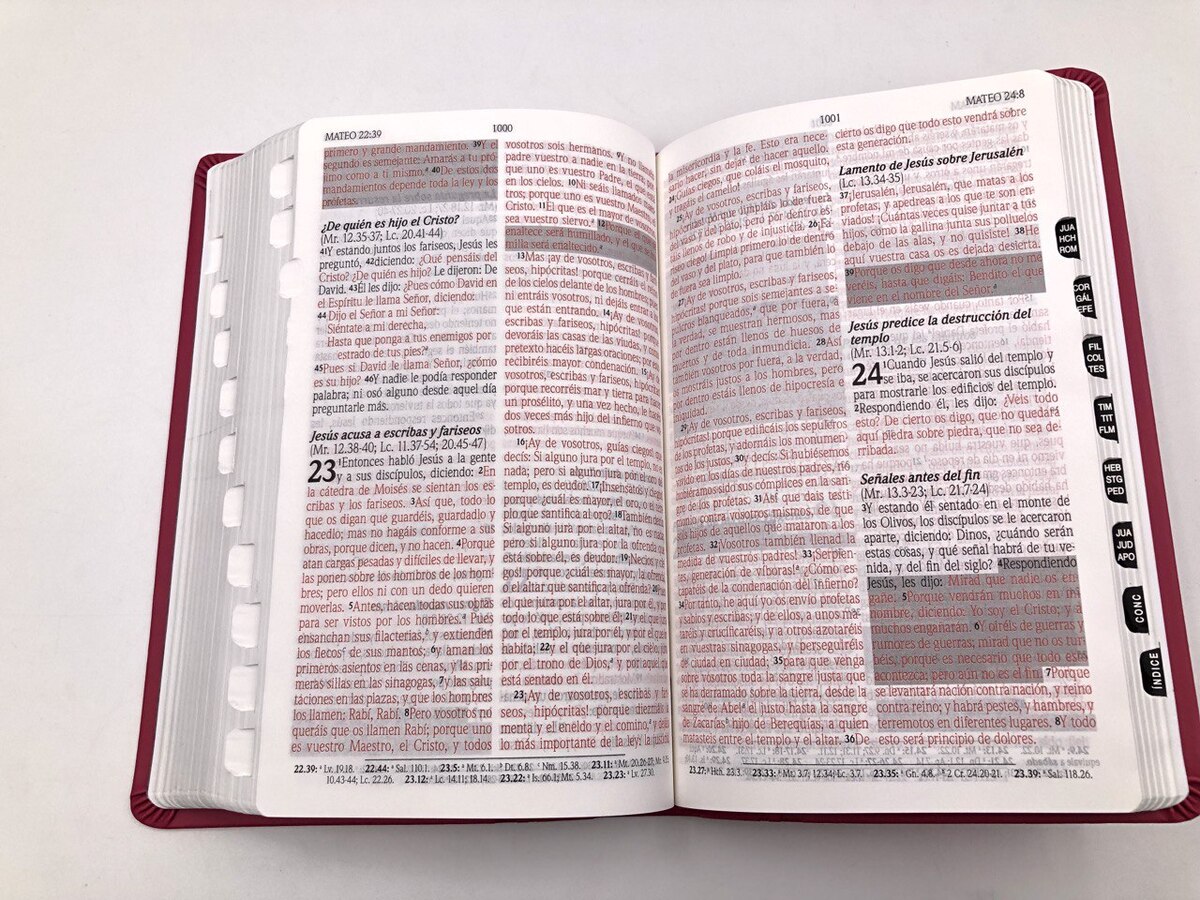 MATEO 22:39
1000
primero y grande mandamiento. 39Y el
segundo es semejante: Amarás a tu pró-
jimo como a ti mismo.a 40De estos dos
mandamientos depende toda la ley y los
profetas.
¿De quién es hijo el Cristo?
(Mr. 12.35-37; Lc. 20.41-44)
41Y estando juntos los fariseos, Jesús les
preguntó, 42diciendo: ¿Qué pensáis del
Cristo? ¿De quién es hijo? Le dijeron: De
David. 43Él les dijo: ¿Pues cómo David en
el Espíritu le llama Señor, diciendo:
44 Dijo el Señor a mi Señor:
Siéntate a mi derecha,
Hasta que ponga a tus enemigos por
estrado de tus pies?a
45Pues si David le llama Señor, ¿cómo
es su hijo? 46Y nadie le podía responder
palabra; ni osó alguno desde aquel día
preguntarle más.
Jesús acusa a escribas y fariseos
(Mr. 12.38-40; Lc. 11.37-54; 20.45-47)
23 1Entonces habló Jesús a la gente
y a sus discípulos, diciendo: 2En
la cátedra de Moisés se sientan los es-
cribas y los fariseos. 3Así que, todo lo
que os digan que guardéis, guardadlo y
hacedlo; mas no hagáis conforme a sus
obras, porque dicen, y no hacen. 4Porque
atan cargas pesadas y difíciles de llevar, y
las ponen sobre los hombros de los hom-
bres; pero ellos ni con un dedo quieren
moverlas. 5Antes, hacen todas sus obras
para ser vistos por los hombres.a Pues
ensanchan sus filacterias,b y extienden
los flecosc de sus mantos; 6y aman los
primeros asientos en las cenas, y las pri-
meras sillas en las sinagogas, 7y las salu-
taciones en las plazas, y que los hombres
los llamen: Rabí, Rabí. 8Pero vosotros no
queráis que os llamen Rabí; porque uno
es vuestro Maestro, el Cristo, y todos
vosotros sois hermanos. 9Y no
padre vuestro a nadie en la tierra; por
que uno es vuestro Padre, el que
en los cielos. 10Ni seáis llamados
tros; porque uno es vuestro Maestro
Cristo. 11El que es el mayor de
sea vuestro siervo.a 12Porque
enaltece será humillado, y el que
milla será enaltecido.a
13Mas ¡ay de vosotros, escribas y
seos, hipócritas! porque cerráis el
de los cielos delante de los hombres
ni entráis vosotros, ni dejáis entrar
que están entrando. 14¡Ay de
escribas y fariseos, hipócritas! porque
devoráis las casas de las viudas, y como
pretexto hacéis largas oraciones; por
recibiréis mayor condenación. 15¡Ay
vosotros, escribas y fariseos, hipócritas!
porque recorréis mar y tierra para
un prosélito, y una vez hecho, le
dos veces más hijo del infierno que
sotros.
16¡Ay de vosotros, guías ciegos! que
decís: Si alguno jura por el templo, no es
nada; pero si alguno jura por el oro
templo, es deudor. 17¡Insensatos y ciegos!
porque ¿cuál es mayor, el oro, o el
plo que santifica al oro? 18También decís:
Si alguno jura por el altar, no es
pero si alguno jura por la ofrenda que
está sobre él, es deudor. 19¡Necios y cie-
gos! porque ¿cuál es mayor, la ofrenda,
o el altar que santifica la ofrenda? 20
el que jura por el altar, jura por él, y por
todo lo que está sobre él; 21y el que
por el templo, jura por él, y por el que
habita; 22y el que jura por el cielo,
por el trono de Dios,a y por aquel
está sentado en él.
23¡Ay de vosotros, escribas y fari
seos, hipócritas! porque diezmáis
menta y el eneldo y el comino,a y
lo más importante de la ley: la justicia
22.39: a Lv. 19.18. 22.44: a Sal. 110.1. 23.5: a Mt. 6.1. b Dt. 6.8. c Nm. 15.38. 23.11: a Mt. 20.26-27; Mr. 9.35;
10.43-44; Lc. 22.26. 23.12: a Lc. 14.11; 18.14. 23.22: a Is. 66.1; Mt. 5.34. 23.23: a Lv. 27.30.
1001
MATEO 24:8
la misericordia y la fe. Esto era nece-
sario hacer, sin dejar de hacer aquello.
24¡Guías ciegos, que coláis el mosquito,
y tragáis el camello!
25¡Ay de vosotros, escribas y fariseos,
hipócritas! porque limpiáis lo de fuera
del vaso y del plato, pero por dentro es-
táis llenos de robo y de injusticia. 26¡Fa-
riseo ciego! Limpia primero lo de dentro
del vaso y del plato, para que también lo
de fuera sea limpio.
27¡Ay de vosotros, escribas y fariseos,
hipócritas! porque sois semejantes a se-
pulcros blanqueados,a que por fuera, a
la verdad, se muestran hermosos, mas
por dentro están llenos de huesos de
muertos y de toda inmundicia. 28Así
también vosotros por fuera, a la verdad,
os mostráis justos a los hombres, pero
por dentro estáis llenos de hipocresía e
iniquidad.
29¡Ay de vosotros, escribas y fariseos,
hipócritas! porque edificáis los sepulcros
de los profetas, y adornáis los monumen-
tos de los justos, 30y decís: Si hubiésemos
vivido en los días de nuestros padres, no
hubiéramos sido sus cómplices en la san-
gre de los profetas. 31Así que dais testi-
monio contra vosotros mismos, de que
sois hijos de aquellos que mataron a los
profetas. 32¡Vosotros también llenad la
medida de vuestros padres! 33¡Serpien-
tes, generación de víboras!a ¿Cómo es-
caparéis de la condenación del infierno?
34Por tanto, he aquí yo os envío profetas
y sabios y escribas; y de ellos, a unos ma-
taréis y crucificaréis, y a otros azotaréis
en vuestras sinagogas, y perseguiréis
de ciudad en ciudad; 35para que venga
sobre vosotros toda la sangre justa que
se ha derramado sobre la tierra, desde la
sangre de Abela el justo hasta la sangre
de Zacarías,b hijo de Berequías, a quien
matasteis entre el templo y el altar. 36De
cierto os digo que todo esto vendrá sobre
esta generación.
Lamento de Jesús sobre Jerusalén
(Lc. 13.34-35)
37¡Jerusalén, Jerusalén, que matas a los
profetas, y apedreas a los que te son en-
viados! ¡Cuántas veces quise juntar a tus
hijos, como la gallina junta sus polluelos
debajo de las alas, y no quisiste! 38He
aquí vuestra casa os es dejada desierta.
39Porque os digo que desde ahora no me
veréis, hasta que digáis: Bendito el que
viene en el nombre del Señor.a
Jesús predice la destrucción del
templo
(Mr. 13.1-2; Lc. 21.5-6)
24 1Cuando Jesús salió del templo y
se iba, se acercaron sus discípulos
para mostrarle los edificios del templo.
2Respondiendo él, les dijo: ¿Veis todo
esto? De cierto os digo, que no quedará
aquí piedra sobre piedra, que no sea de-
rribada.
Señales antes del fin
(Mr. 13.3-23; Lc. 21.7-24)
3Y estando él sentado en el monte de
los Olivos, los discípulos se le acercaron
aparte, diciendo: Dinos, ¿cuándo serán
estas cosas, y qué señal habrá de tu ve-
nida, y del fin del siglo? 4Respondiendo
Jesús, les dijo: Mirad que nadie os en-
gañe. 5Porque vendrán muchos en mi
nombre, diciendo: Yo soy el Cristo; y a
muchos engañarán. 6Y oiréis de guerras y
rumores de guerras; mirad que no os tur-
béis, porque es necesario que todo esto
acontezca; pero aún no es el fin. 7Porque
se levantará nación contra nación, y reino
contra reino; y habrá pestes, y hambres, y
terremotos en diferentes lugares. 8Y todo
esto será principio de dolores.
23.27: a Hch. 23.3. 23.33: a Mt. 3.7; 12.34; Lc. 3.7. 23.35: a Gn. 4.8. b 2 Cr. 24.20-21. 23.39: a Sal. 118.26.
JUA
HCH
ROM
COR
GÁL
EFE
FIL
COL
TES
TIM
TIT
FLM
HEB
STG
PED
JUA
JUD
APO
CONC
ÍNDICE